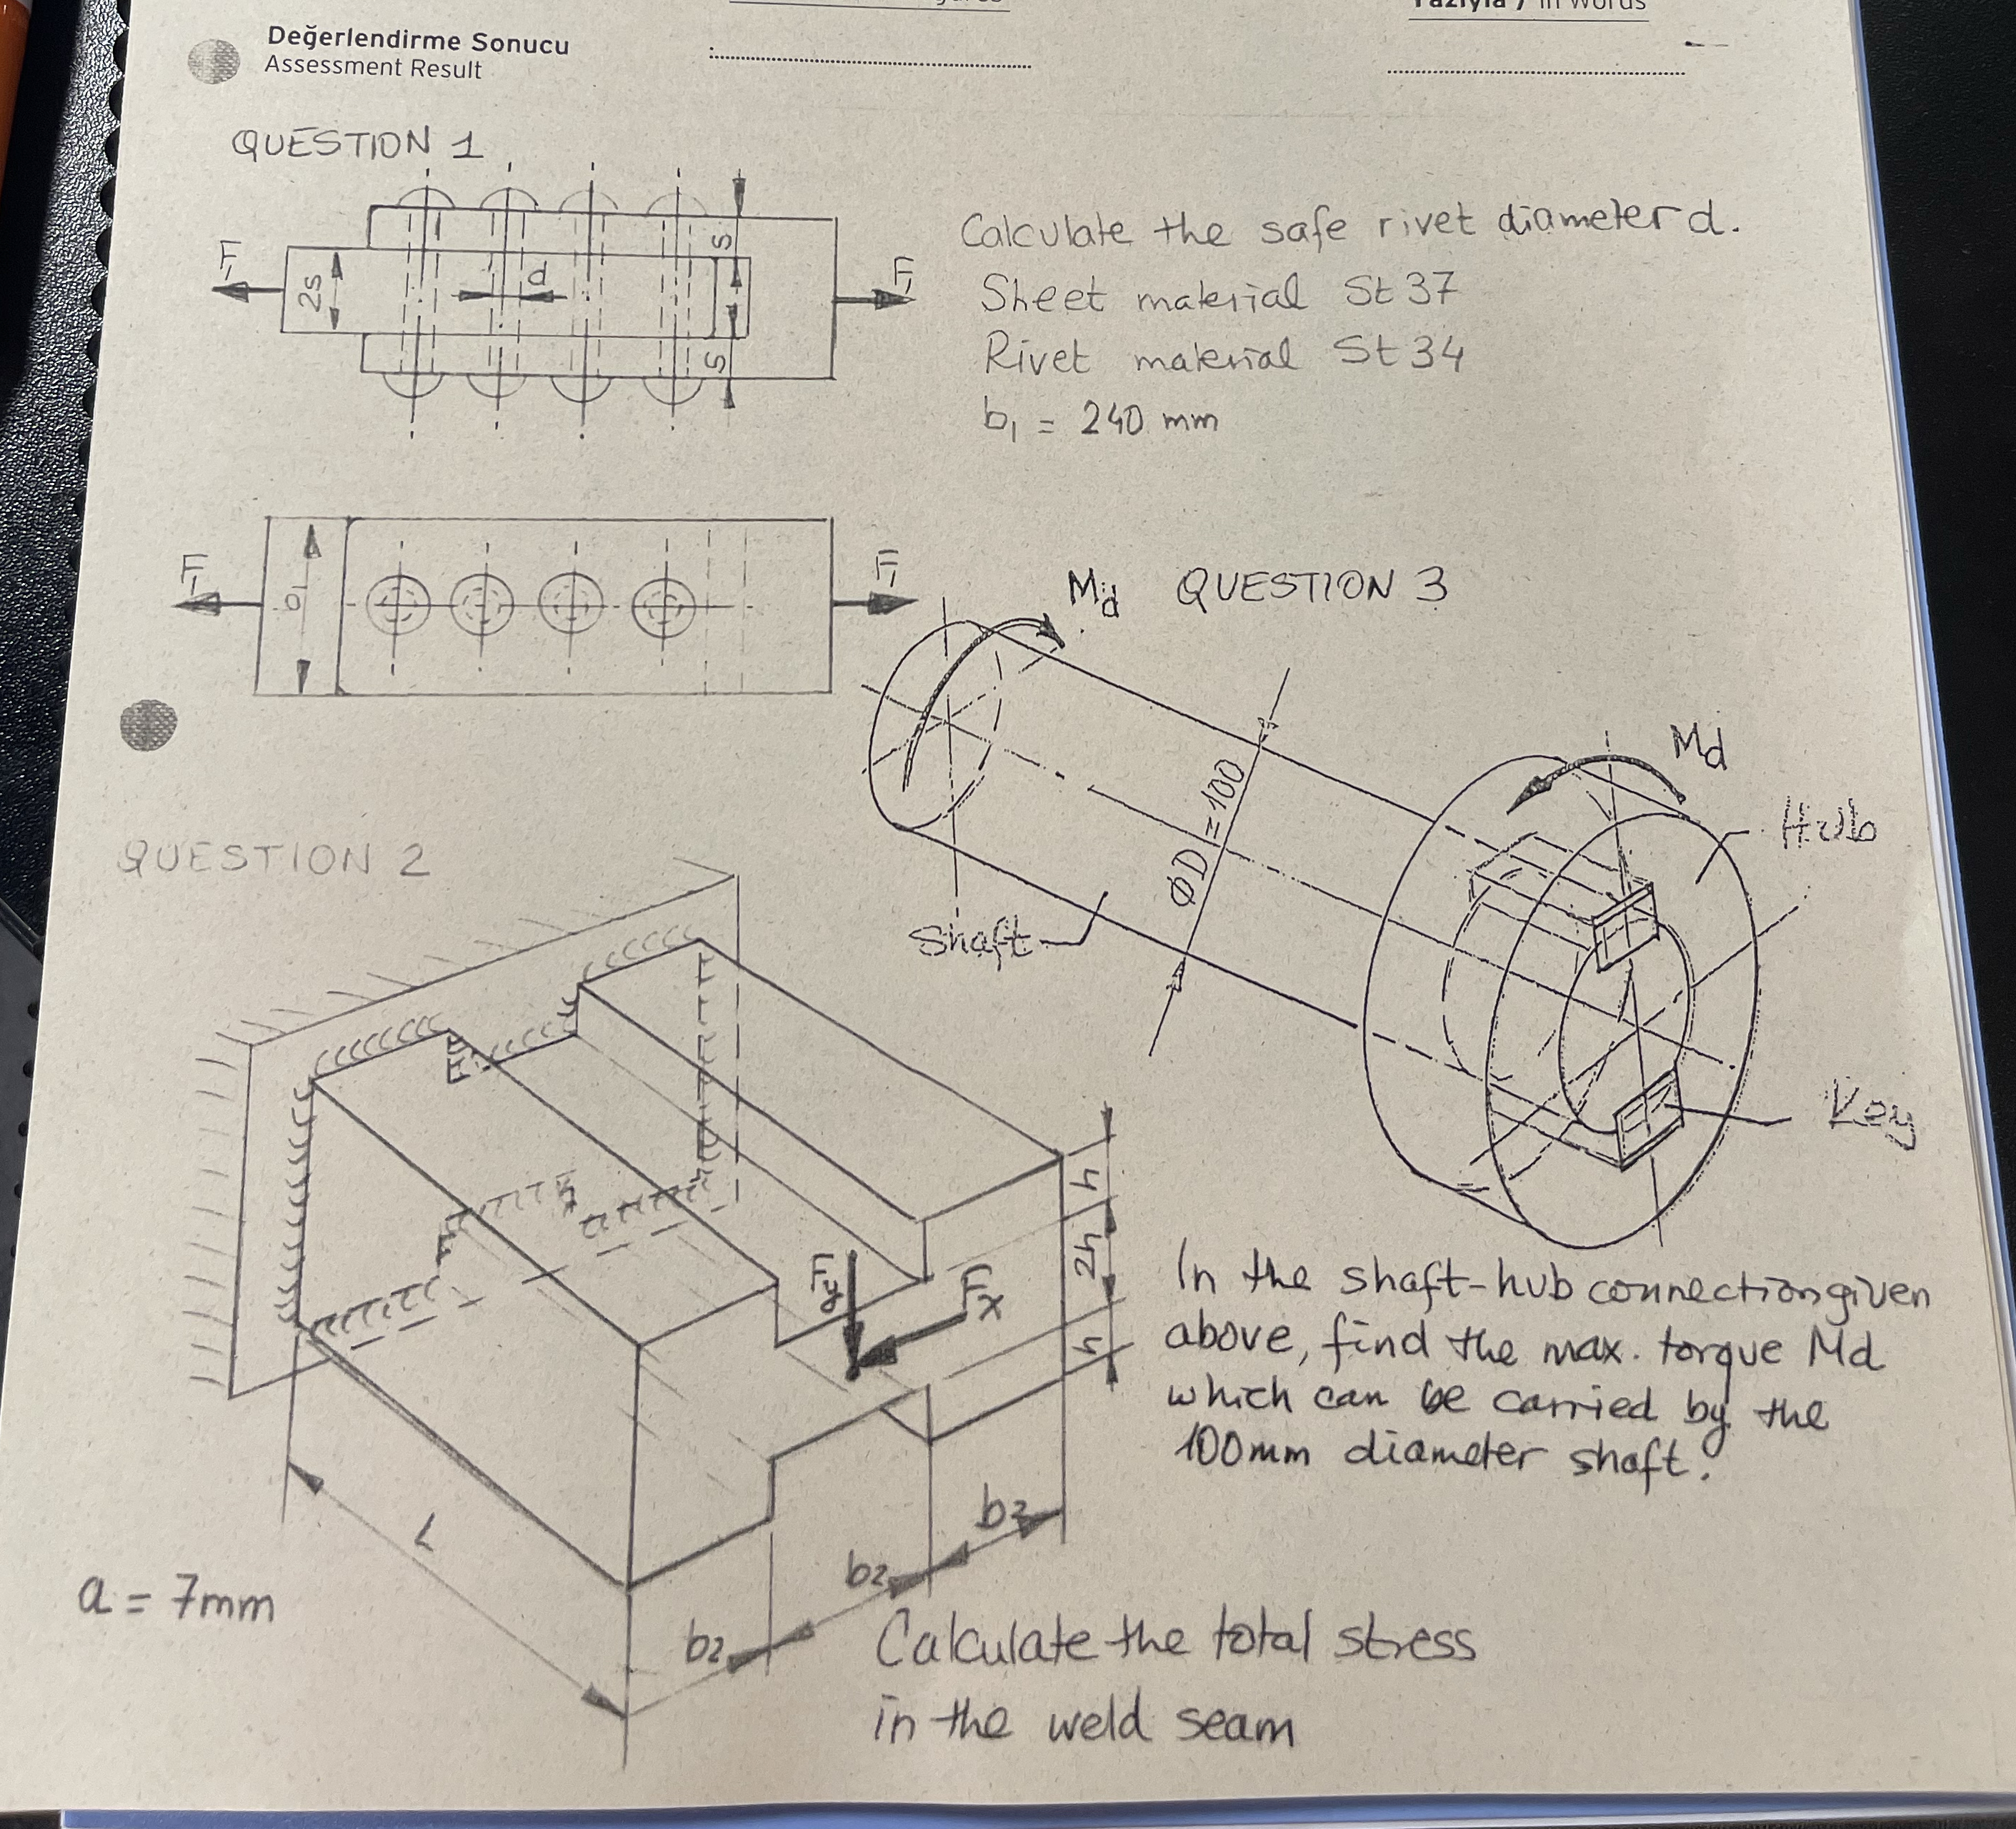 Yazıyla / In Words
Değerlendirme Sonucu
Assessment Result
QUESTION 1
F₁
2s
d
s
s
F₁
Calculate the safe rivet diameter d.
Sheet material St 37
Rivet material St 34
b₁ = 240 mm
F₁
b₁
F₁
Md
QUESTION 3
Md
Hub
ØD=100
Shaft
Key
In the shaft-hub connection given
above, find the max. torque Md
which can be carried by the
100mm diameter shaft.
QUESTION 2
h
2h
h
Fy
Fx
L
b₂
b₂
b₂
a = 7mm
Calculate the total stress
in the weld seam